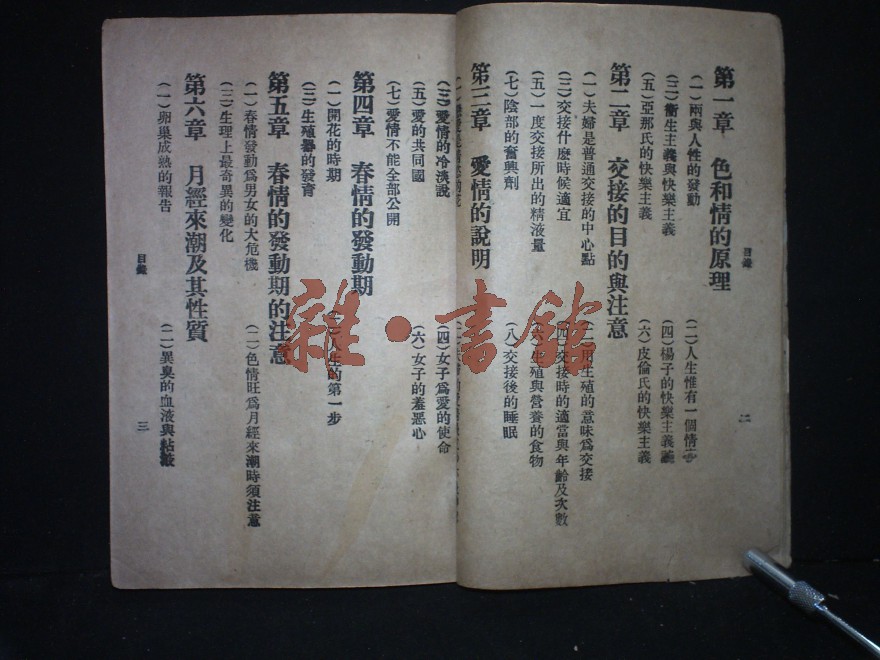 目錄
二
第一章　色和情的原理
(一)兩與人性的發動
(二)人生惟有一個情字
(三)衞生主義與快樂主義
(四)楊子的快樂主義
(五)亞那氏的快樂主義
(六)皮倫氏的快樂主義
第二章　交接的目的與注意
(一)夫婦是普通交接的中心點
生殖的意味爲交接
(三)交接什麼時候適宜
(四)交接時的適當與年齡及次數
(五)一度交接所出的精液量
(六)生殖與營養的食物
(七)陰部的奮興劑
(八)交接後的睡眠
第三章　愛情的說明
(三)愛情的冷淡說
(四)女子爲愛的使命
(五)愛的共同國
(六)女子的羞惡心
(七)愛情不能全部公開
第四章　春情的發動期
(一)開花的時期
(二)人生的第一步
(三)生殖器的發育
第五章　春情的發動期的注意
(一)春情發動爲男女的大危機
(二)色情旺爲月經來潮時須注意
(三)生理上最奇異的變化
第六章　月經來潮及其性質
(一)卵巢成熟的報告
(二)異臭的血液與粘液
目錄
三
雜·書館